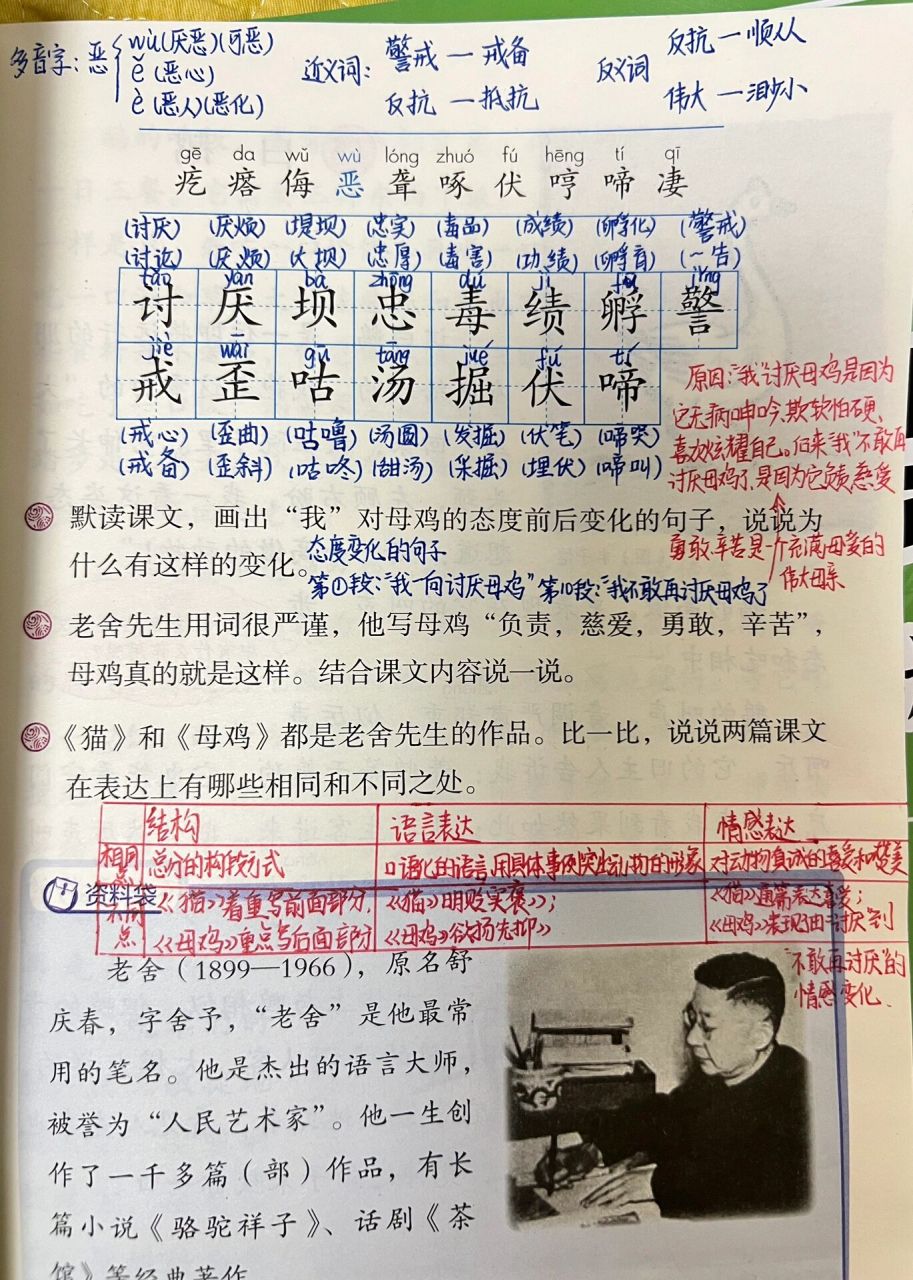 多音字：恶 wù(厌恶)(可恶)
ě(恶心)
è(恶人)(恶化)
近义词：警戒—戒备
反抗—抵抗
反义词 反抗—顺从
伟大—渺小
gē da wǔ wù lóng zhuó fú hēng tí qī
疙瘩侮恶聋啄伏哼啼凄
(讨厌) (厌烦) (堤坝) (忠实) (毒品) (成绩) (孵化) (警戒)
(讨论) (厌烦) (大坝) (忠厚) (毒害) (功绩) (孵育) (～告)
tǎo yàn bà zhōng dú jì fū jǐng
讨厌坝忠毒绩孵警
jiè wāi gū tāng jué fú tí
戒歪咕汤掘伏啼
(戒心) (歪曲) (咕噜) (汤圆) (发掘) (伏笔) (啼哭)
(戒备) (歪斜) (咕咚) (甜汤) (采掘) (埋伏) (啼叫)
原因："我"讨厌母鸡是因为
它无病呻吟、欺软怕硬、
喜欢炫耀自己。后来"我"不敢再
讨厌母鸡了，是因为它负责、慈爱
勇敢、辛苦是一个充满母爱的
伟大母亲
默读课文，画出“我”对母鸡的态度前后变化的句子，说说为
什么有这样的变化。
态度变化的句子
第①段："我一向讨厌母鸡" 第10段："我不敢再讨厌母鸡了
老舍先生用词很严谨，他写母鸡“负责，慈爱，勇敢，辛苦”，
母鸡真的就是这样。结合课文内容说一说。
《猫》和《母鸡》都是老舍先生的作品。比一比，说说两篇课文
在表达上有哪些相同和不同之处。
结构 语言表达 情感表达
相同点 总分的构段方式 口语化的语言，用具体事例突出动物的形象 对动物真诚的喜爱和赞美
不同点 《猫》着重写前面部分， 《猫》明贬实褒； 《猫》通篇表达喜爱；
《母鸡》重点写后面部分 《母鸡》欲扬先抑 《母鸡》表现由"讨厌"到
"不敢再讨厌"的
情感变化
资料袋
老舍（1899—1966），原名舒
庆春，字舍予，“老舍”是他最常
用的笔名。他是杰出的语言大师，
被誉为“人民艺术家”。他一生创
作了一千多篇（部）作品，有长
篇小说《骆驼祥子》、话剧《茶
馆》等经典著作